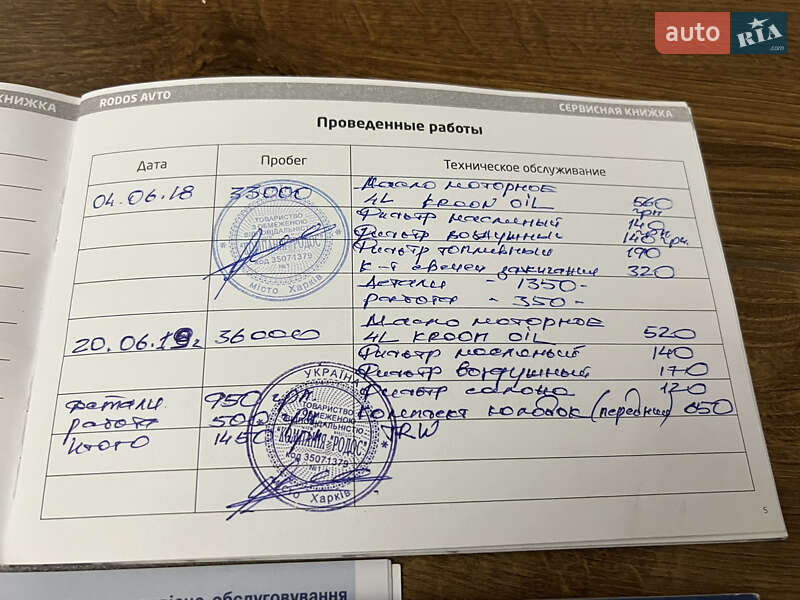 auto RIA.com
КНИЖКА
RODOS AVTO
СЕРВИСНАЯ КНИЖКА
Проведенные работы
Дата Пробег Техническое обслуживание
04.06.18 33000 Масло моторное
4L KROON OIL 560 грн
Фильтр масляный 140
Фильтр воздушный 140 грн.
Фильтр топливный 190
К-т свечей зажигания 320
Детали - 1350-
работа - 350-
20.06.19г 36000 Масло моторное
4L KROON OIL 520
Фильтр масляный 140
Фильтр воздушный 170
Детали 950 грн. Фильтр салона 120
работа 500 грн Комплект колодок (передних) 650
Итого 1450 TRW
ТОВАРИСТВО
З ОБМЕЖЕНОЮ
ВІДПОВІДАЛЬНІСТЮ
"КОМПАНІЯ "РОДОС"
КОД 35071379
№1
місто Харків
УКРАЇНА
ТОВАРИСТВО
З ОБМЕЖЕНОЮ
ВІДПОВІДАЛЬНІСТЮ
"КОМПАНІЯ "РОДОС"
КОД 35071379
№1
місто Харків
5
обслуговування